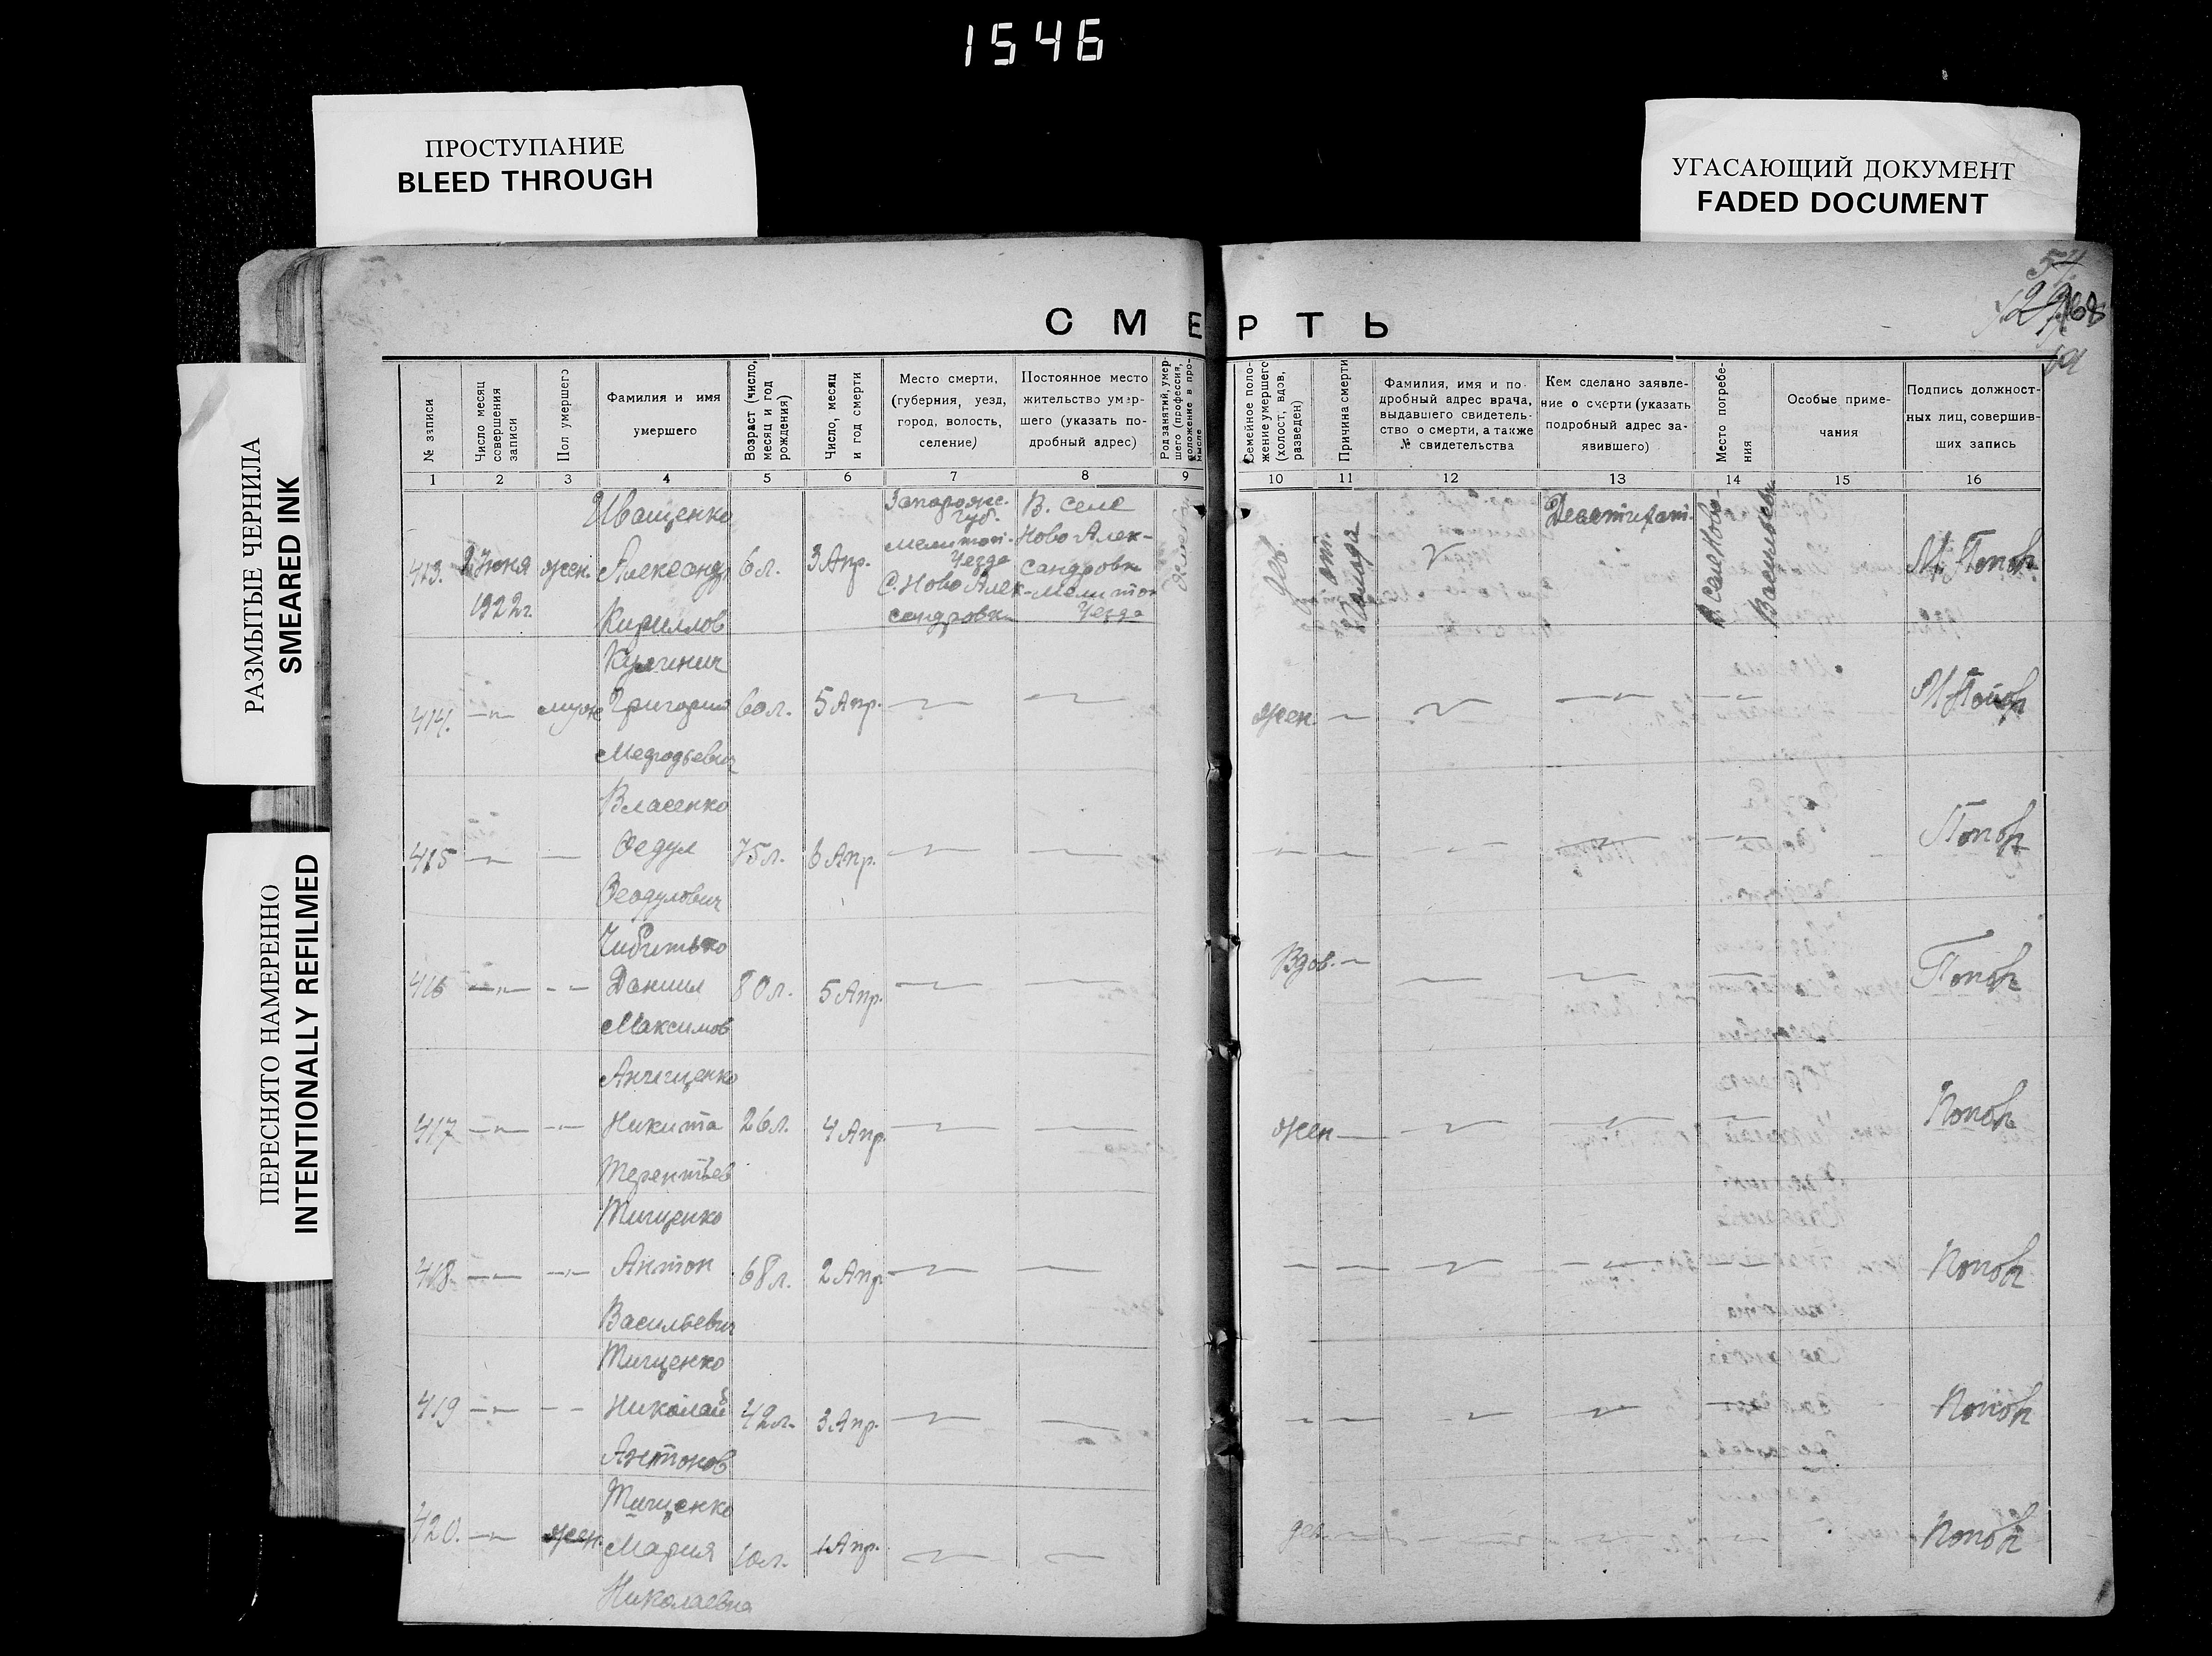 1546
ПРОСТУПАНИЕ
BLEED THROUGH
УГАСАЮЩИЙ ДОКУМЕНТ
FADED DOCUMENT
РАЗМЫТЫЕ ЧЕРНИЛА
SMEARED INK
ПЕРЕСНЯТО НАМЕРЕННО
INTENTIONALLY REFILMED
68
СМЕРТЬ
№ записи
Число месяц
совершения
записи
Пол умершего
Фамилия и имя
умершего
Возраст (число,
месяц и год
рождения)
Число, месяц
и год смерти
Место смерти,
(губерния, уезд,
город, волость,
селение)
Постоянное место
жительство умер-
шего (указать по-
дробный адрес)
Род занятий, умер-
шего (профессия,
положение в про-
мысле
Семейное поло-
жение умершего
(холост, вдов,
разведен)
Причина смерти
Фамилия, имя и по-
дробный адрес врача,
выдавшего свидетель-
ство о смерти, а также
№ свидетельства
Кем сделано заявле-
ние о смерти (указать
подробный адрес за-
явившего)
Место погребе-
ния
Особые приме-
чания
Подпись должност-
ных лиц, совершив-
ших запись
1 2 3 4 5 6 7 8 9 10 11 12 13 14 15 16
413. 2 Июня 1922г. жен.
Иващенко
Александр
Кириллов
6 л. 3 Апр.
Запорож.
Губ.
Мелитоп.
Уезда
С. Ново Алек-
сандровк
В. селе
Ново Алек-
сандровк
Мелитоп
Уезда
Дев.
от
голода
В. селе Ново-
Васильевк
М. Попов
414. —"— муж
Григорий
Мефодьевич
60 л. 5 Апр. жен. М Попов
415 —"— —
Власенко
Федул
Феодулович
75 л. 6 Апр. Попов
416 —"— —
Даниил
Максимов
80 л. 5 Апр. Вдов. Попов
417 —"— —
Никита
Терентьев
26 л. 4 Апр. жен Попов
418 —"— —"—
Тищенко
Антон
Васильевич
68 л. 2 Апр. Попов
419 —"— —
Тищенко
Николай
Антонов
42 л. 3 Апр. Попов
420. —"— жен.
Тищенко
Мария
Николаевна
10 л. 1 Апр. Попов